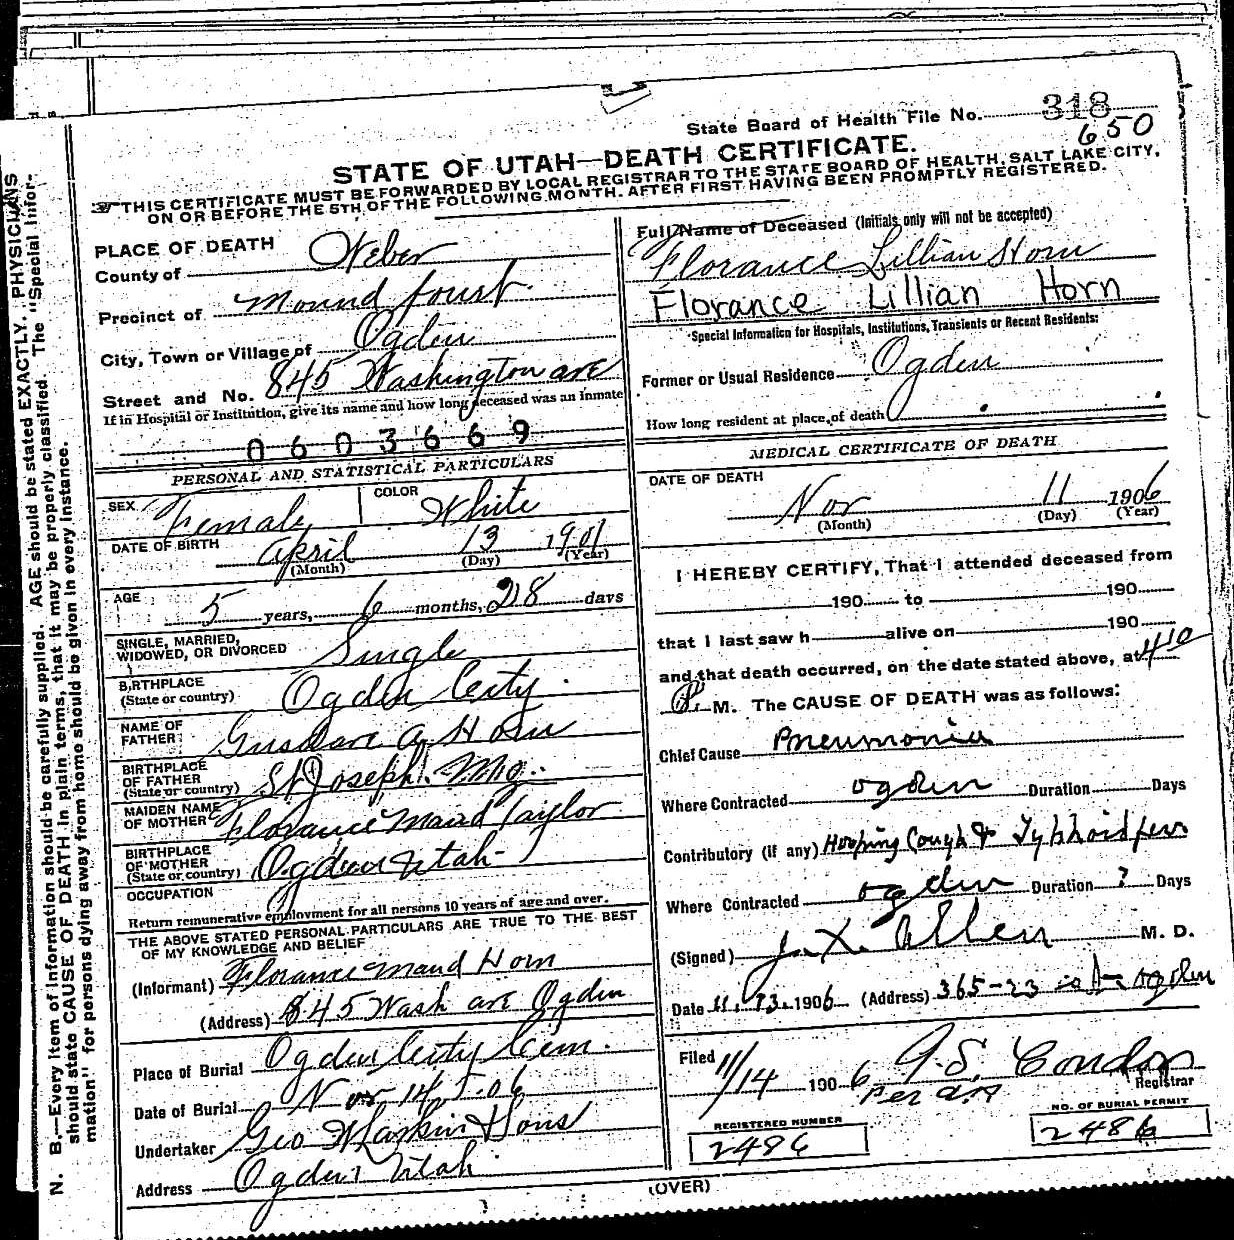 State Board of Health File No. 318
650
STATE OF UTAH—DEATH CERTIFICATE.
THIS CERTIFICATE MUST BE FORWARDED BY LOCAL REGISTRAR TO THE STATE BOARD OF HEALTH, SALT LAKE CITY,
ON OR BEFORE THE 5TH OF THE FOLLOWING MONTH, AFTER FIRST HAVING BEEN PROMPTLY REGISTERED.
N. B.—Every item of information should be carefully supplied. AGE should be stated EXACTLY. PHYSICIANS
should state CAUSE OF DEATH in plain terms, that it may be properly classified. The "Special Infor-
mation" for persons dying away from home should be given in every instance.
PLACE OF DEATH
County of Weber
Precinct of Mound fourt
City, Town or Village of Ogden
Street and No. 845 Washington ave
If in Hospital or Institution, give its name and how long deceased was an inmate
0603669
PERSONAL AND STATISTICAL PARTICULARS
SEX Female COLOR White
DATE OF BIRTH April 13 1901
(Month) (Day) (Year)
AGE 5 years, 6 months, 28 days
SINGLE, MARRIED,
WIDOWED, OR DIVORCED Single
BIRTHPLACE
(State or country) Ogden City.
NAME OF
FATHER Gustave A Horn
BIRTHPLACE
OF FATHER
(State or country) St Joseph. Mo.
MAIDEN NAME
OF MOTHER Florance Maud Taylor
BIRTHPLACE
OF MOTHER
(State or country) Ogden Utah
OCCUPATION
Return remunerative employment for all persons 10 years of age and over.
THE ABOVE STATED PERSONAL PARTICULARS ARE TRUE TO THE BEST
OF MY KNOWLEDGE AND BELIEF
(Informant) Florance Maud Horn
(Address) 845 Wash ave Ogden
Place of Burial Ogden City Cem.
Date of Burial Nov 14, 06
Undertaker Geo Larkin & Sons
Address Ogden Utah
Full Name of Deceased (Initials only will not be accepted)
Florance Lillian Horn
Florance Lillian Horn
Special Information for Hospitals, Institutions, Transients or Recent Residents:
Former or Usual Residence Ogden
How long resident at place of death
MEDICAL CERTIFICATE OF DEATH
DATE OF DEATH
Nov 11 1906
(Month) (Day) (Year)
I HEREBY CERTIFY, That I attended deceased from
190 to 190
that I last saw h alive on 190
and that death occurred, on the date stated above, at 4 10
P. M. The CAUSE OF DEATH was as follows:
Chief Cause Pneumonia
Where Contracted Ogden Duration Days
Contributory (if any) Hooping Cough & Typhoid fever
Where Contracted Ogden Duration ? Days
(Signed) J. X. Allen M. D.
Date 11. 13. 1906 (Address) 365-23 st Ogden
Filed 11/14 1906 A. S. Condon
Per Registrar
REGISTERED NUMBER
2486
NO. OF BURIAL PERMIT
2486
(OVER)